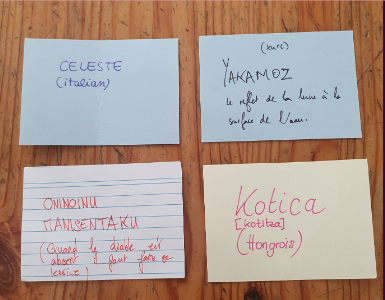 CELESTE
(italian)
(turc)
YAKAMOZ
le reflet de la lune à la
surface de l'eau.
ONINOINU
MANISENTAKU
(Quand le diable est
absent il faut faire sa
lessive)
Kotica
[kotitza]
(Hongrois)